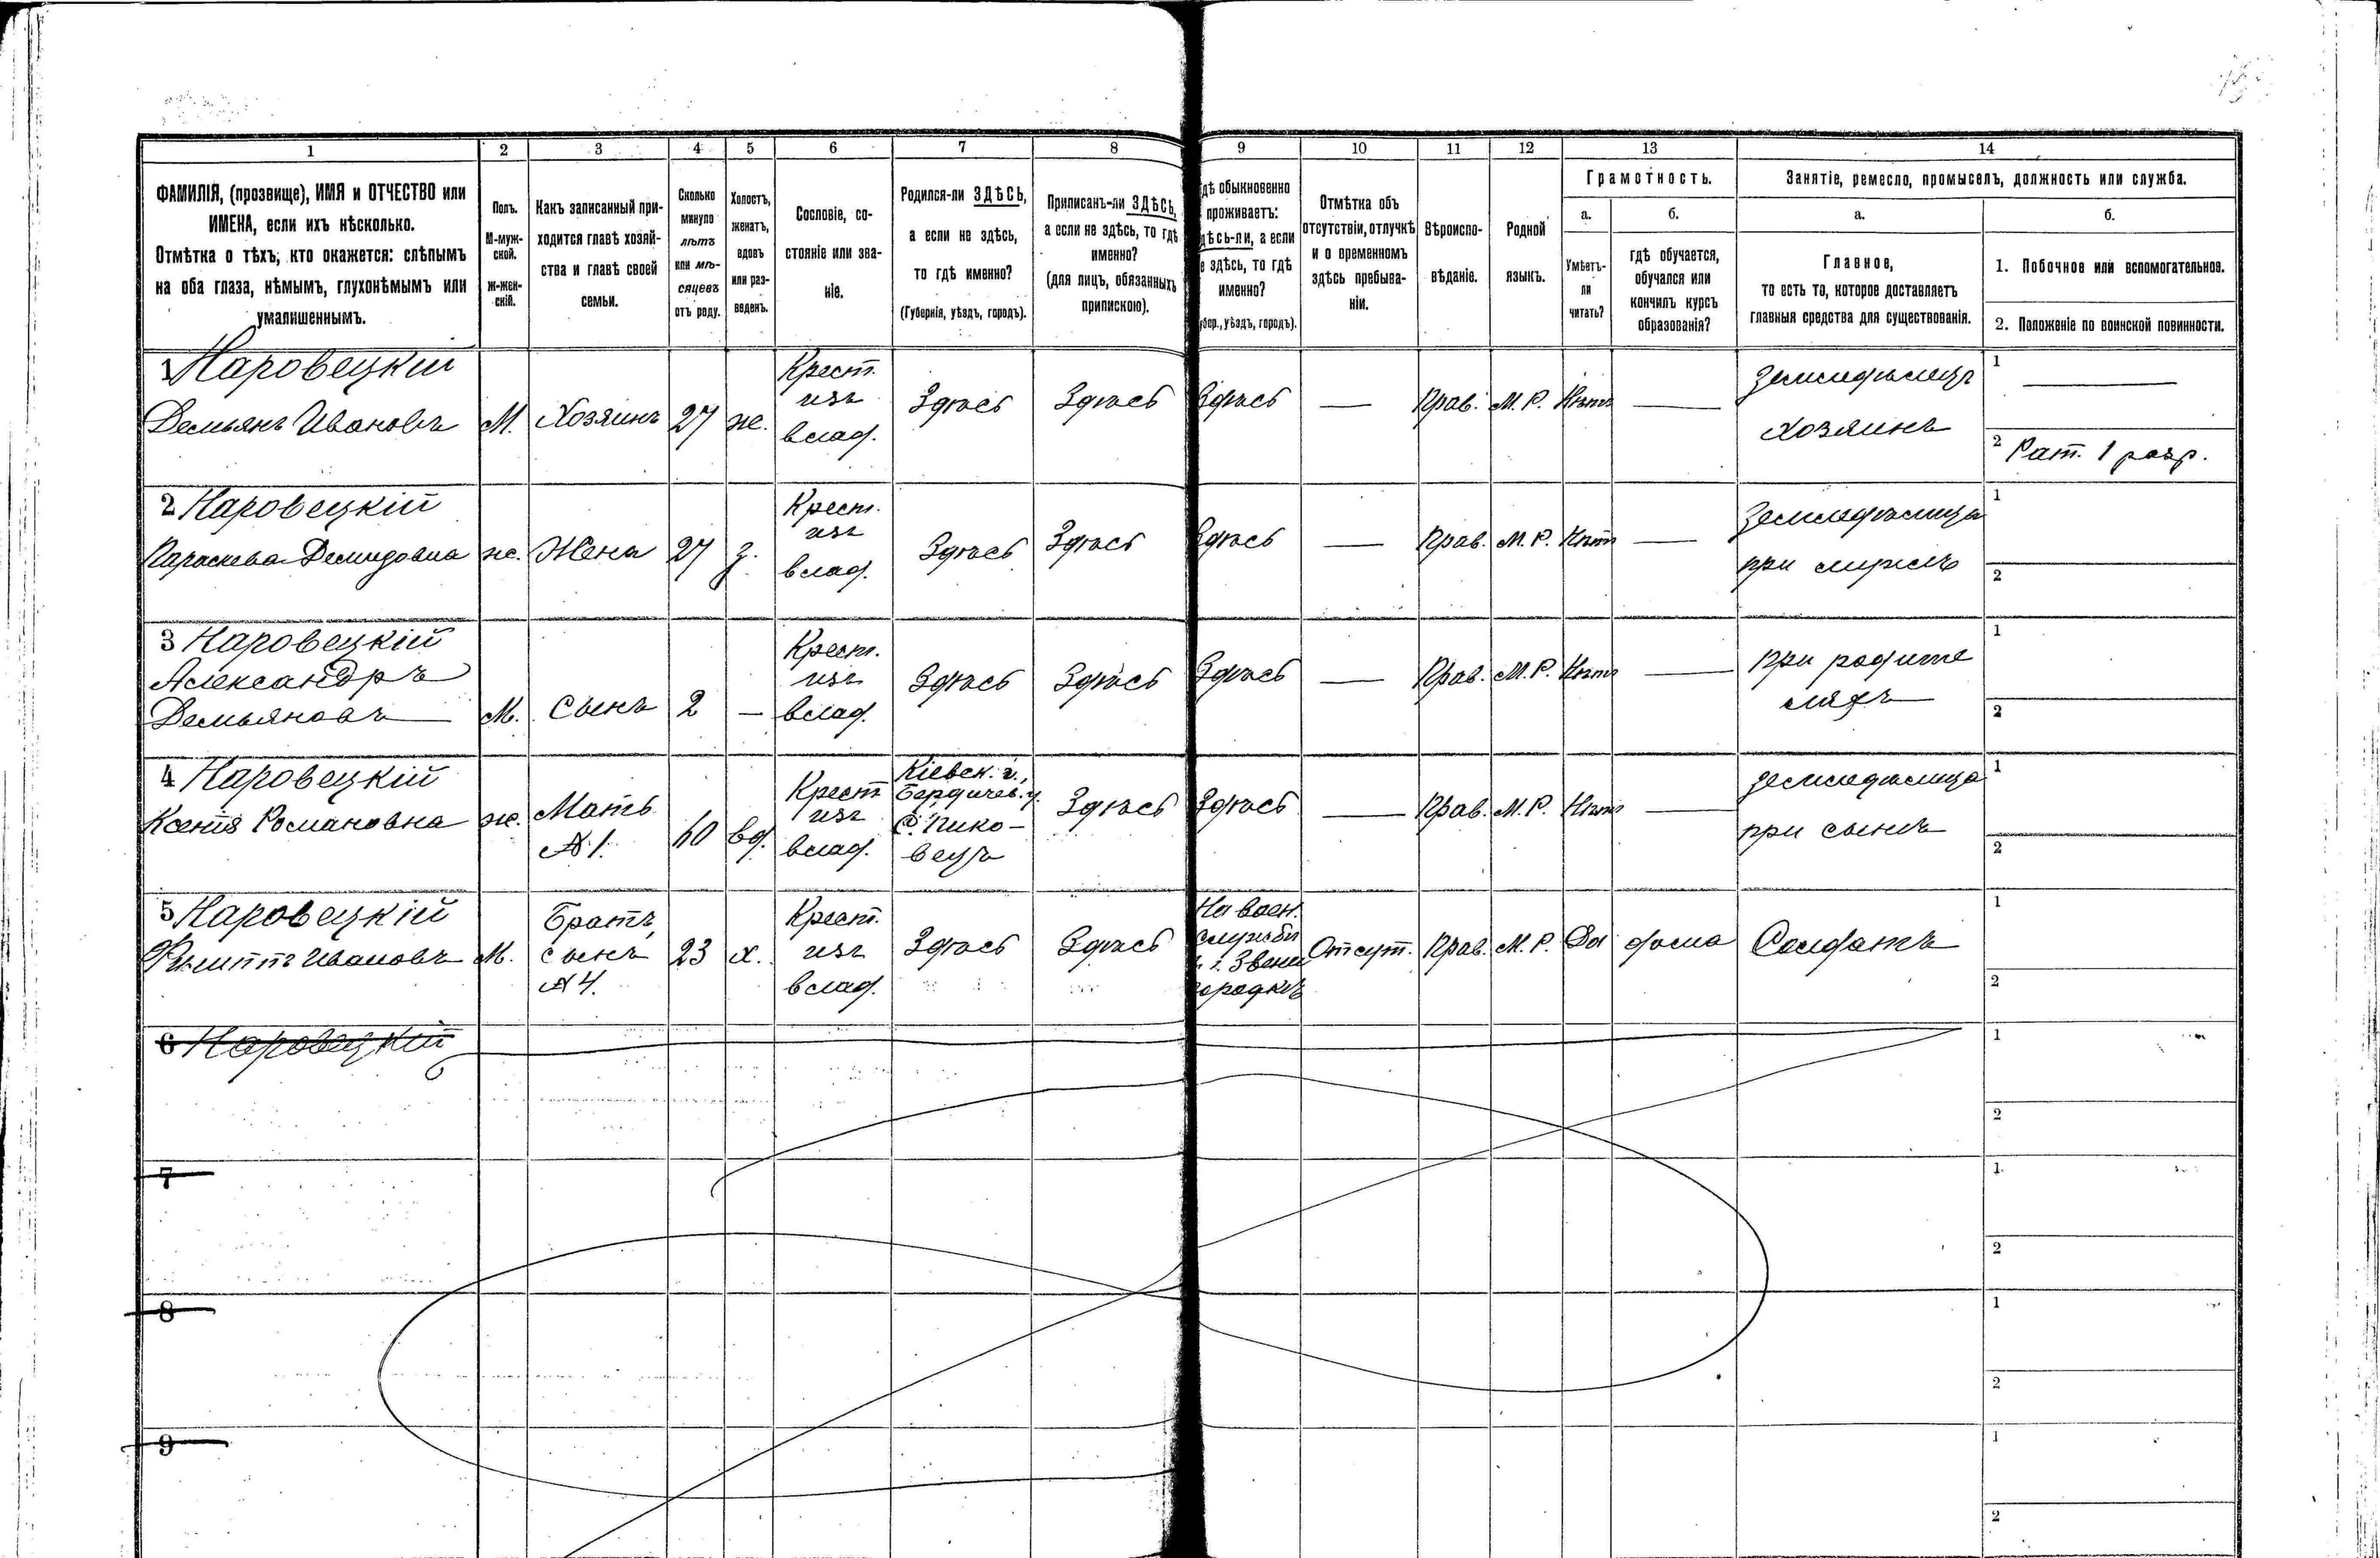 1 2 3 4 5 6 7 8 9 10 11 12 13 14
ФАМИЛІЯ, (прозвище), ИМЯ и ОТЧЕСТВО или
ИМЕНА, если ихъ нѣсколько.
Отмѣтка о тѣхъ, кто окажется: слѣпымъ
на оба глаза, нѣмымъ, глухонѣмымъ или
умалишеннымъ.
Полъ.
М-муж-
ской.
Ж-жен-
скій.
Какъ записанный при-
ходится главѣ хозяй-
ства и главѣ своей
семьи.
Сколько
минуло
лѣтъ
или мѣ-
сяцевъ
отъ роду.
Холостъ,
женатъ,
вдовъ
или раз-
веденъ.
Сословіе, со-
стояніе или зва-
ніе.
Родился-ли ЗДѢСЬ,
а если не здѣсь,
то гдѣ именно?
(Губернія, уѣздъ, городъ).
Приписанъ-ли ЗДѢСЬ,
а если не здѣсь, то гдѣ
именно?
(для лицъ, обязанныхъ
припискою).
дѣ обыкновенно
проживаетъ:
дѣсь-ли, а если
е здѣсь, то гдѣ
именно?
бер., уѣздъ, городъ).
Отмѣтка объ
отсутствіи, отлучкѣ
и о временномъ
здѣсь пребыва-
ніи.
Вѣроиспо-
вѣданіе.
Родной
языкъ.
Грамотность.
а.
Умѣетъ-
ли
читать?
б.
гдѣ обучается,
обучался или
кончилъ курсъ
образованія?
Занятіе, ремесло, промыселъ, должность или служба.
а.
Главное,
то есть то, которое доставляетъ
главныя средства для существованія.
б.
1. Побочное или вспомогательное.
2. Положеніе по воинской повинности.
1 Наровецкій
Демьянъ Ивановъ
М.
Хозяинъ
27
ж.
Крест.
изъ
влад.
Здѣсь
Здѣсь
Здѣсь
—
Прав.
М. Р.
Нѣтъ
—
Земледѣлецъ
хозяинъ
1 —
2 Рат. 1 разр.
2 Наровецкій
Параскева Демидовна
ж.
Жена
27
з.
Крест.
изъ
влад.
Здѣсь
Здѣсь
Здѣсь
—
Прав.
М. Р.
Нѣтъ
—
Земледѣлица
при мужѣ
1
2
3 Наровецкій
Александръ
Демьяновъ
М.
Сынъ
2
—
Крест.
изъ
влад.
Здѣсь
Здѣсь
Здѣсь
—
Прав.
М. Р.
Нѣтъ
—
При родите
ляхъ
1
2
4 Наровецкій
Ксенія Романовна
ж.
Мать
№ 1.
60
вд.
Крест
изъ
влад.
Кіевск. г.,
Бердичев. у.
С. Пико-
вецъ
Здѣсь
Здѣсь
—
Прав.
М. Р.
Нѣтъ
—
Земледѣлица
при сынѣ
1
2
5 Наровецкій
Филиппъ Ивановъ
М.
Братъ,
сынъ
№ 4.
23
х.
Крест.
изъ
влад.
Здѣсь
Здѣсь
На воен.
службѣ
г. Звени
городкѣ
Отсут.
Прав.
М. Р.
Да
дома
Солдатъ
1
2
6 Наровецкій
1
2
7
1
2
8
1
2
9
1
2